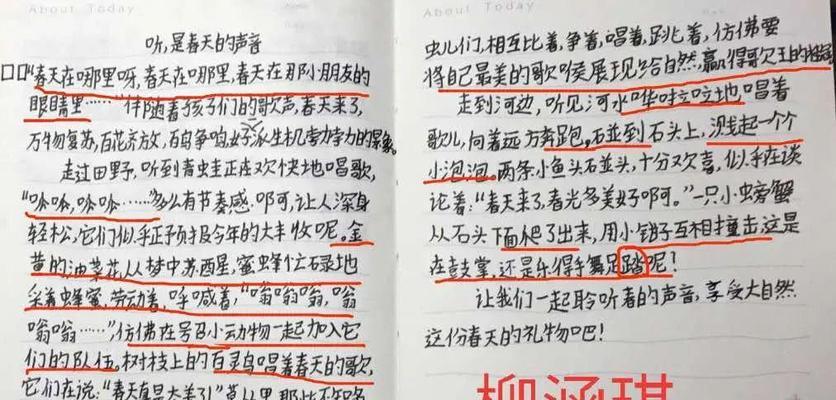 About Today
听,是春天的声音
"春天在哪里呀,春天在哪里,春天在那小朋友的
眼睛里……"伴随着孩子们的歌声,春天来了,
万物复苏,百花齐放,百鸟争鸣,好一派生机勃勃的景象。
走过田野,听到青蛙正在欢快地唱歌,
"呱呱,呱呱……"多么有节奏感啊,可让人浑身
轻松,它们似乎正预报今年的大丰收呢。金
黄的油菜花从梦中苏醒,蜜蜂忙碌地
采着蜂蜜,劳动着,呼喊着,"嗡嗡嗡,嗡
嗡嗡……",仿佛在号召小动物一起加入它
们的队伍。树枝上的百灵鸟唱着春天的歌,
它们在说:"春天真是太美了!"草丛里,那些不知名
About Today
虫儿们,相互比着,争着,唱着,跳着,仿佛要
将自己最美的歌喉展现给自然,赢得歌王的桂冠
走到河边,听见河水哗啦啦地唱着
歌儿,向着远方奔跑。碰到石头上,溅起一个个
小泡泡。两条小鱼头碰头,十分欢喜,似乎在谈
论着:"春天来了,春光多美好啊。"一只小螃蟹
从石头下面爬了出来,用小钳子互相撞击,这是
在鼓掌,还是乐得手舞足蹈呢!
让我们一起聆听春的声音,享受大自然
这份春天的礼物吧!
柳涵琪